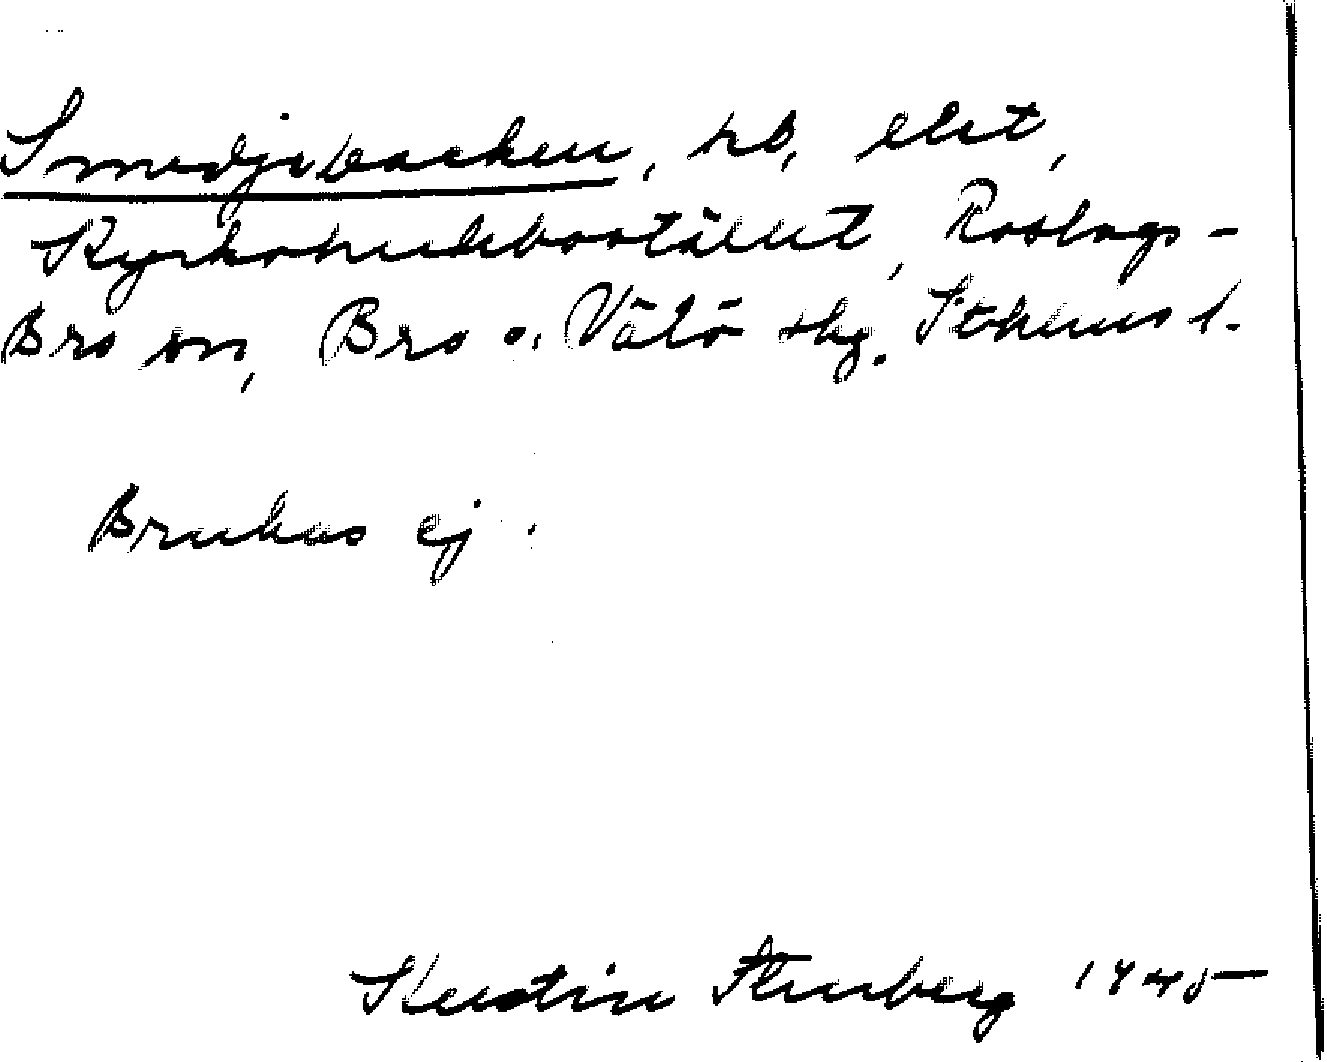 Smedjebacken, hb, elit,
Kyrkoherdebostället, Roslags-
Bro sn, Bro o. Vätö skg. Sthlms l.
Brukas ej.
Kerstin 1945